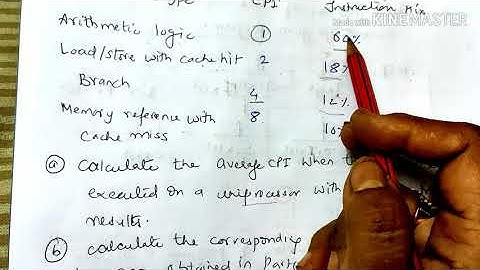 CPI Instruction Mix
Made with KINEMASTER
Arithmetic logic 1 60%
Load/store with cache hit 2 18%
Branch 4 12%
Memory reference with 8 10%
cache miss
(a) Calculate the average CPI when
executed on a uniprocessor with
results.
(b) calculate the corresponding
obtained in